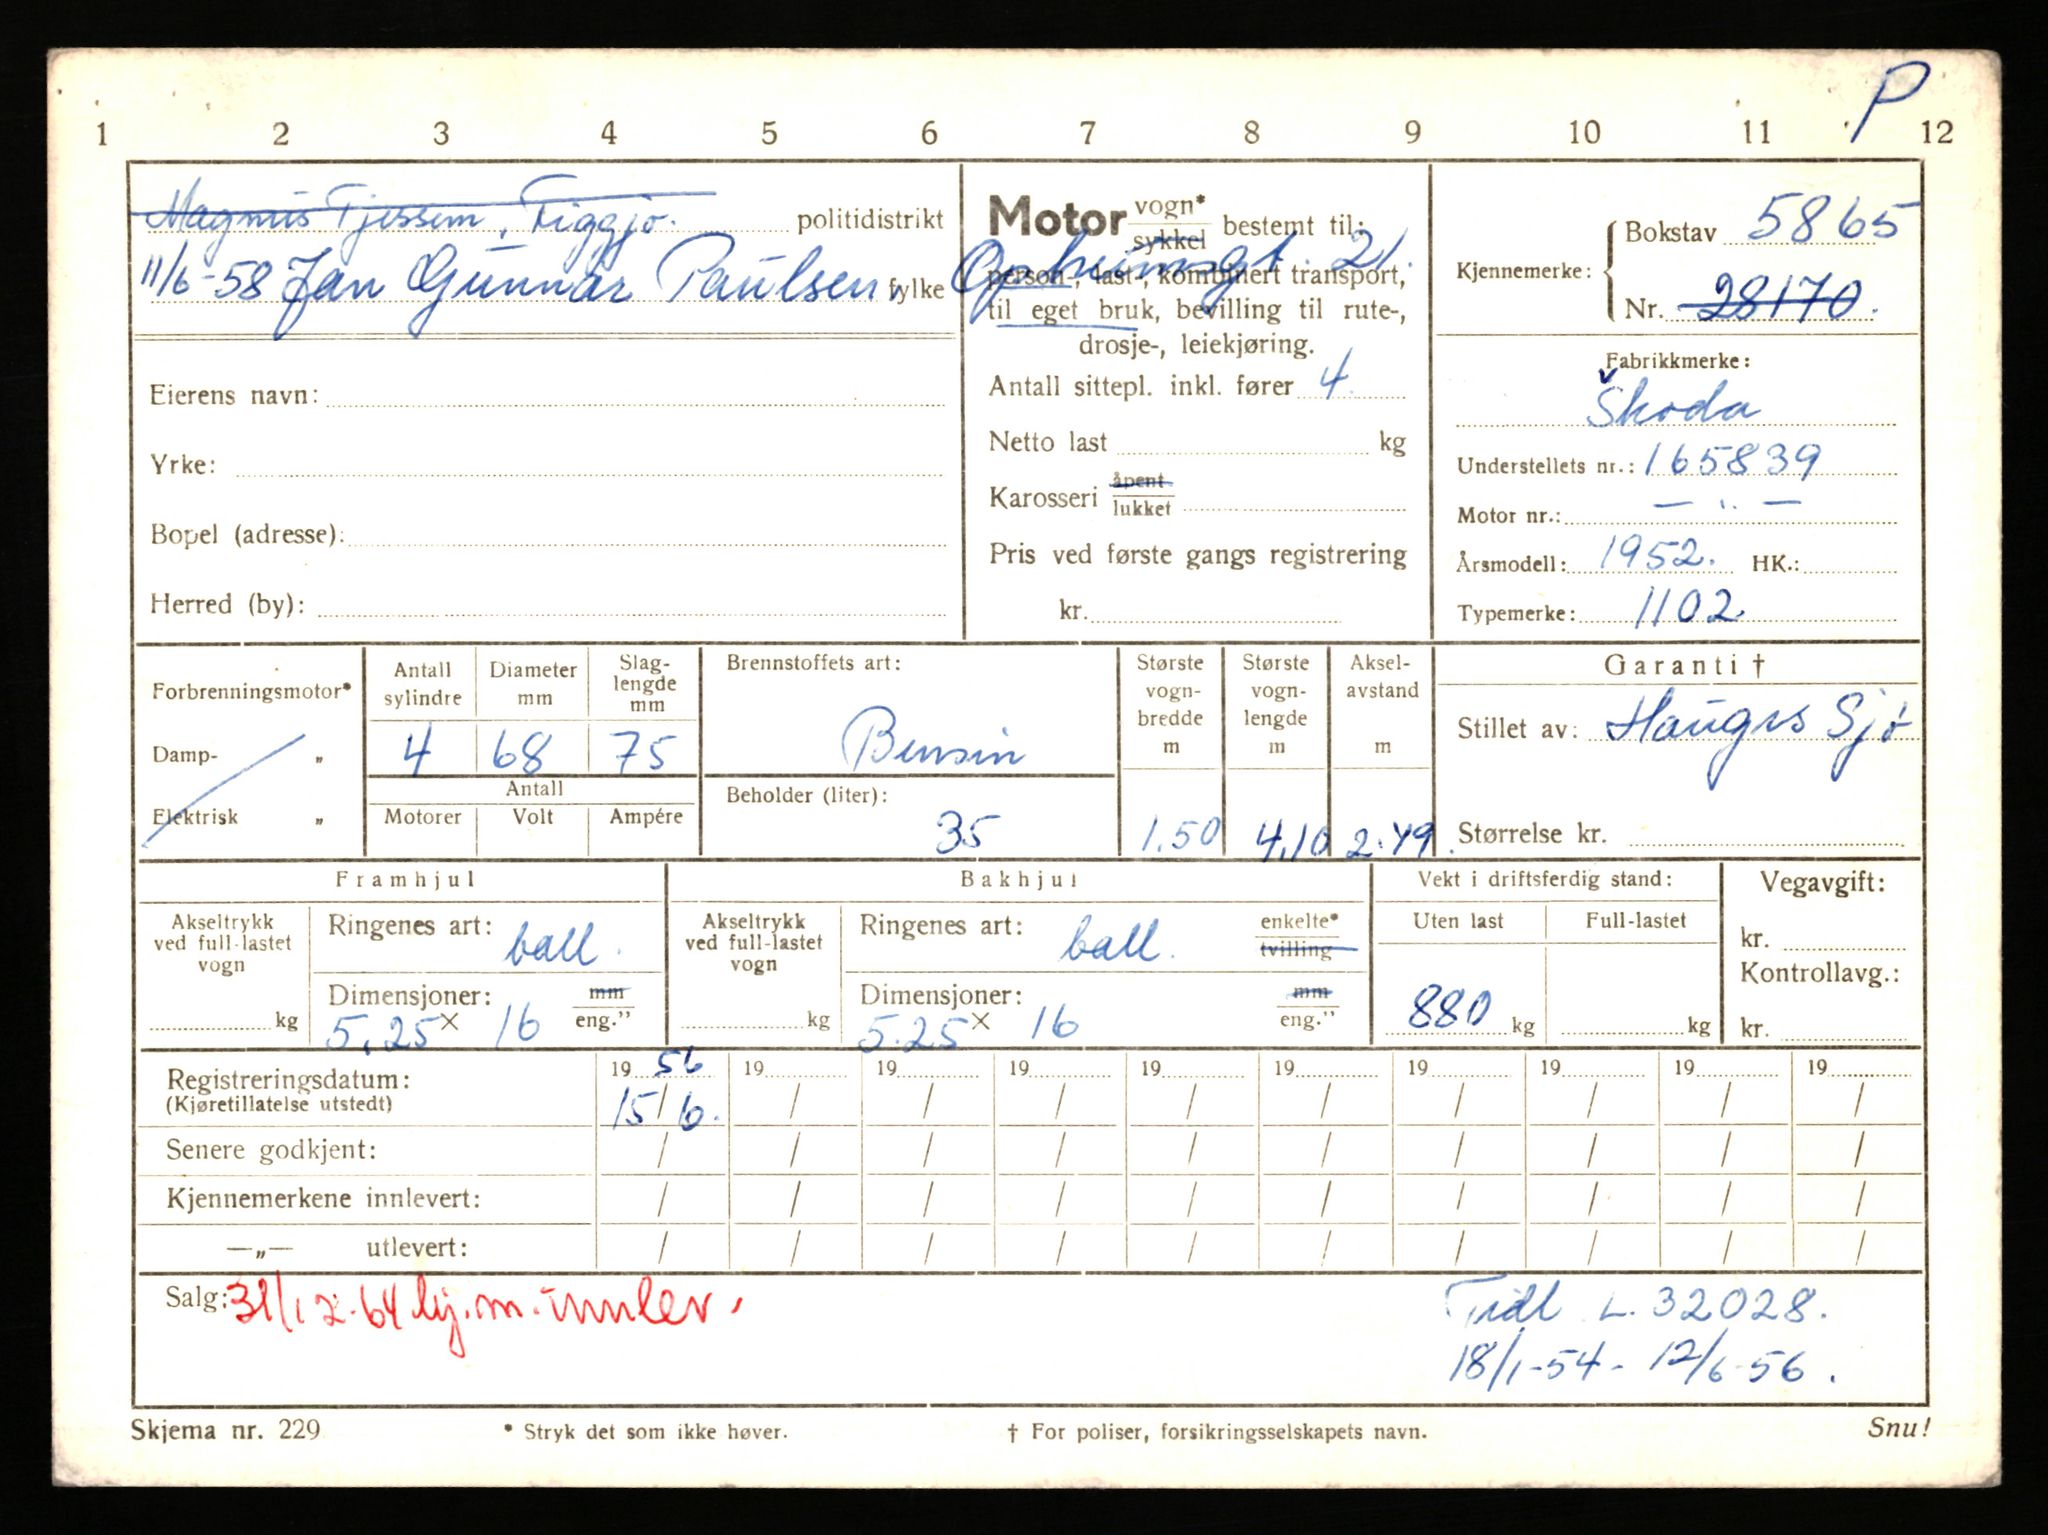 P
1 2 3 4 5 6 7 8 9 10 11 12
Magnus Tjessem, Figgjo. politidistrikt
11/6-58 Jan Gunnar Paulsen, fylke Opheimsgt. 21.
Eierens navn:
Yrke:
Bopel (adresse):
Herred (by):
Motor vogn* sykkel bestemt til:
person-, last-, kombinert transport,
til eget bruk, bevilling til rute-,
drosje-, leiekjøring.
Antall sittepl. inkl. fører 4
Netto last kg
Karosseri åpent lukket
Pris ved første gangs registrering
kr.
Kjennemerke: Bokstav 5865
Nr. 28170.
Fabrikkmerke:
Škoda
Understellets nr.: 165839
Motor nr.: — " —
Årsmodell: 1952. HK.:
Typemerke: 1102
Forbrenningsmotor*
Damp- "
Elektrisk "
Antall sylindre 4
Diameter mm 68
Slag-lengde mm 75
Antall
Motorer Volt Ampére
Brennstoffets art:
Bensin
Beholder (liter):
35
Største vogn-bredde m 1.50
Største vogn-lengde m 4.10
Aksel-avstand m 2.49.
Garanti †
Stillet av: Haugrs Sjø
Størrelse kr.
Framhjul
Akseltrykk ved full-lastet vogn kg
Ringenes art: ball.
Dimensjoner: mm eng."
5,25 × 16
Bakhjul
Akseltrykk ved full-lastet vogn kg
Ringenes art: ball. enkelte* tvilling
Dimensjoner: mm eng."
5.25 × 16
Vekt i driftsferdig stand:
Uten last Full-lastet
880 kg kg
Vegavgift:
kr.
Kontrollavg.:
kr.
Registreringsdatum: 19 56 19 19 19 19 19 19 19 19 19
(Kjøretillatelse utstedt) 15/6. / / / / / / / / /
Senere godkjent: / / / / / / / / / /
Kjennemerkene innlevert: / / / / / / / / / /
—„— utlevert: / / / / / / / / / /
Salg: 31/12-64 kj.m. innlev.
Tidl L. 32028.
18/1-54 - 12/6-56.
Skjema nr. 229 * Stryk det som ikke høver. † For poliser, forsikringsselskapets navn. Snu!